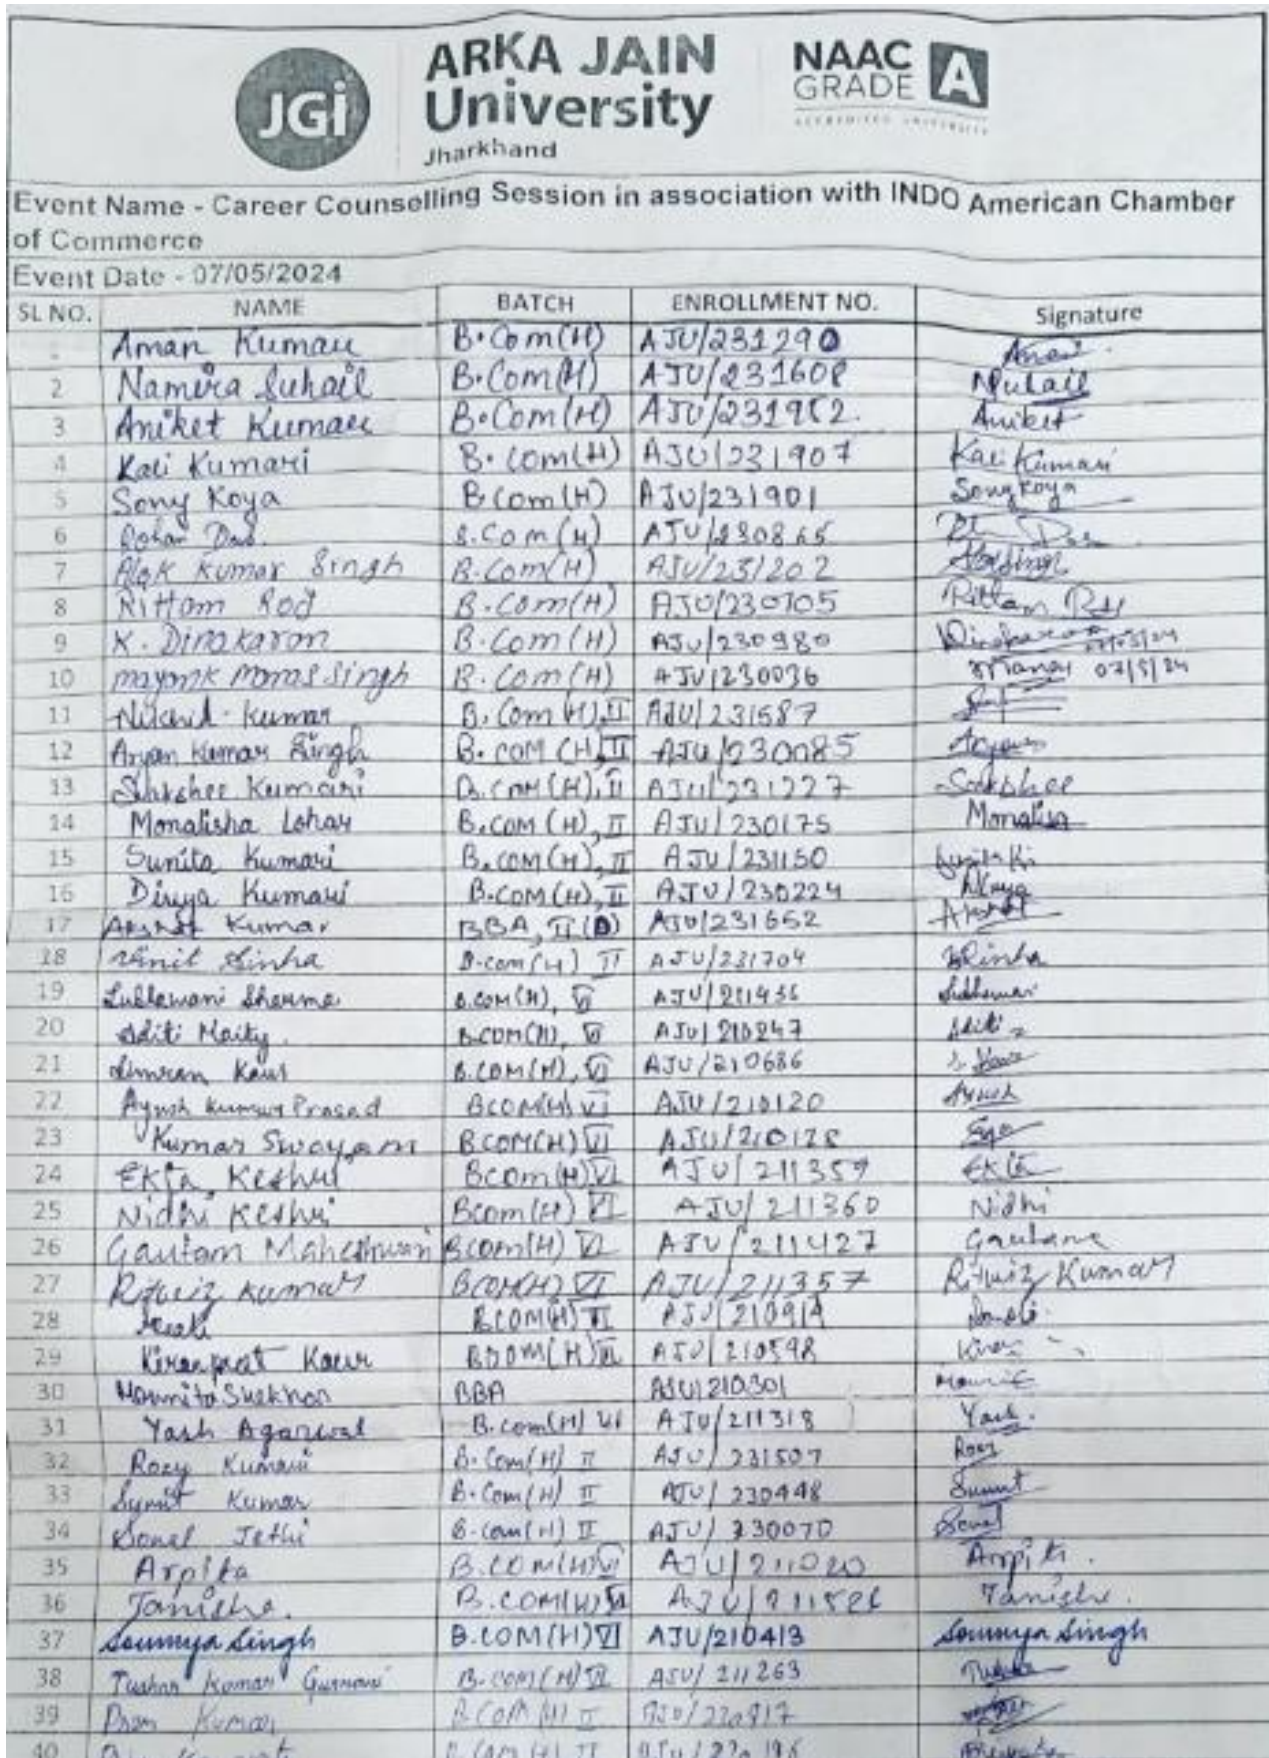 JGI
ARKA JAIN
University
Jharkhand
NAAC
GRADE A
ACCREDITED UNIVERSITY
Event Name - Career Counselling Session in association with INDO American Chamber
of Commerce
Event Date - 07/05/2024
SL NO. NAME BATCH ENROLLMENT NO. Signature
Aman Kumar B.Com(H) AJU/231290
2 Namira Suhail B.Com(H) AJU/231608 NSuhail
3 Aniket Kumar B.Com(H) AJU/231952. Aniket
4 Kali Kumari B.Com(H) AJU/231907 Kali Kumari
5 Sony Koya B.Com(H) AJU/231901 Sony Koya
6 Rohan Das. B.Com(H) AJU/230865 Das
7 Alok Kumar Singh B.Com(H) AJU/231202
8 Rittam Roy B.Com(H) AJU/230705 Rittam Roy
9 K. Dinakaran B.Com(H) AJU/230980 Dinakaran
10 mayank Manas Singh B.Com(H) AJU/230036 Manas 07/5/24
11 Kumar B.Com(H), II AJU/231587
12 Aryan Kumar Singh B.COM (H), II AJU/230085
13 Sakshee Kumari B.COM(H), II AJU/231227 Sakshee
14 Monalisha Lohar B.COM (H), II AJU/230175 Monalisa
15 Sunita Kumari B.COM(H), II AJU/231150
16 Divya Kumari B.COM(H), II AJU/230224 Divya
17 Akshat Kumar BBA, II(D) AJU/231652 Akshat
18 Vinit Sinha B.com(H) II AJU/231704
19 Sharma B.COM(H), VI
20 Aditi Maity B.COM(H), VI AJU/210247 Aditi
21 Simran Kaur B.COM(H), VI AJU/210686 S. Kaur
22 Ayush Kumar Prasad BCOM(H) VI AJU/210120 Ayush
23 Kumar Swayam BCOM(H) VI AJU/210128
24 Ekta Keshri BCOM(H) VI AJU/211359 Ekta
25 Nidhi Keshri Bcom(H) VI AJU/211360 Nidhi
26 Gautam Maheshwari BCOM(H) VI AJU/211427 Gautam
27 Rituiz Kumar BCOM(H) VI AJU/211357 Rituiz Kumar
28 BCOM(H) AJU/210914
29 Kiranpreet Kaur BCOM(H) VI AJU/210598 Kiran
30 BBA AJU/210301
31 Yash Agarwal B.com(H) VI AJU/211318 Yash.
32 Rozy Kumari B.Com(H) II AJU/231507 Rozy
33 Sumit Kumar B.Com(H) II AJU/230448 Sumit
34 Sonal Jethi B.com(H) II AJU/230070 Sonal
35 Arpita B.COM(H) VI AJU/211020 Arpita.
36 Tanisha. B.COM(H) VI AJU/211526 Tanisha.
37 Soumya Singh B.COM(H) VI AJU/210413 Soumya Singh
38 Tushar Kumar B.COM(H) VI AJU/211263 Tushar
39 Prem Kumar B.COM(H) II
40